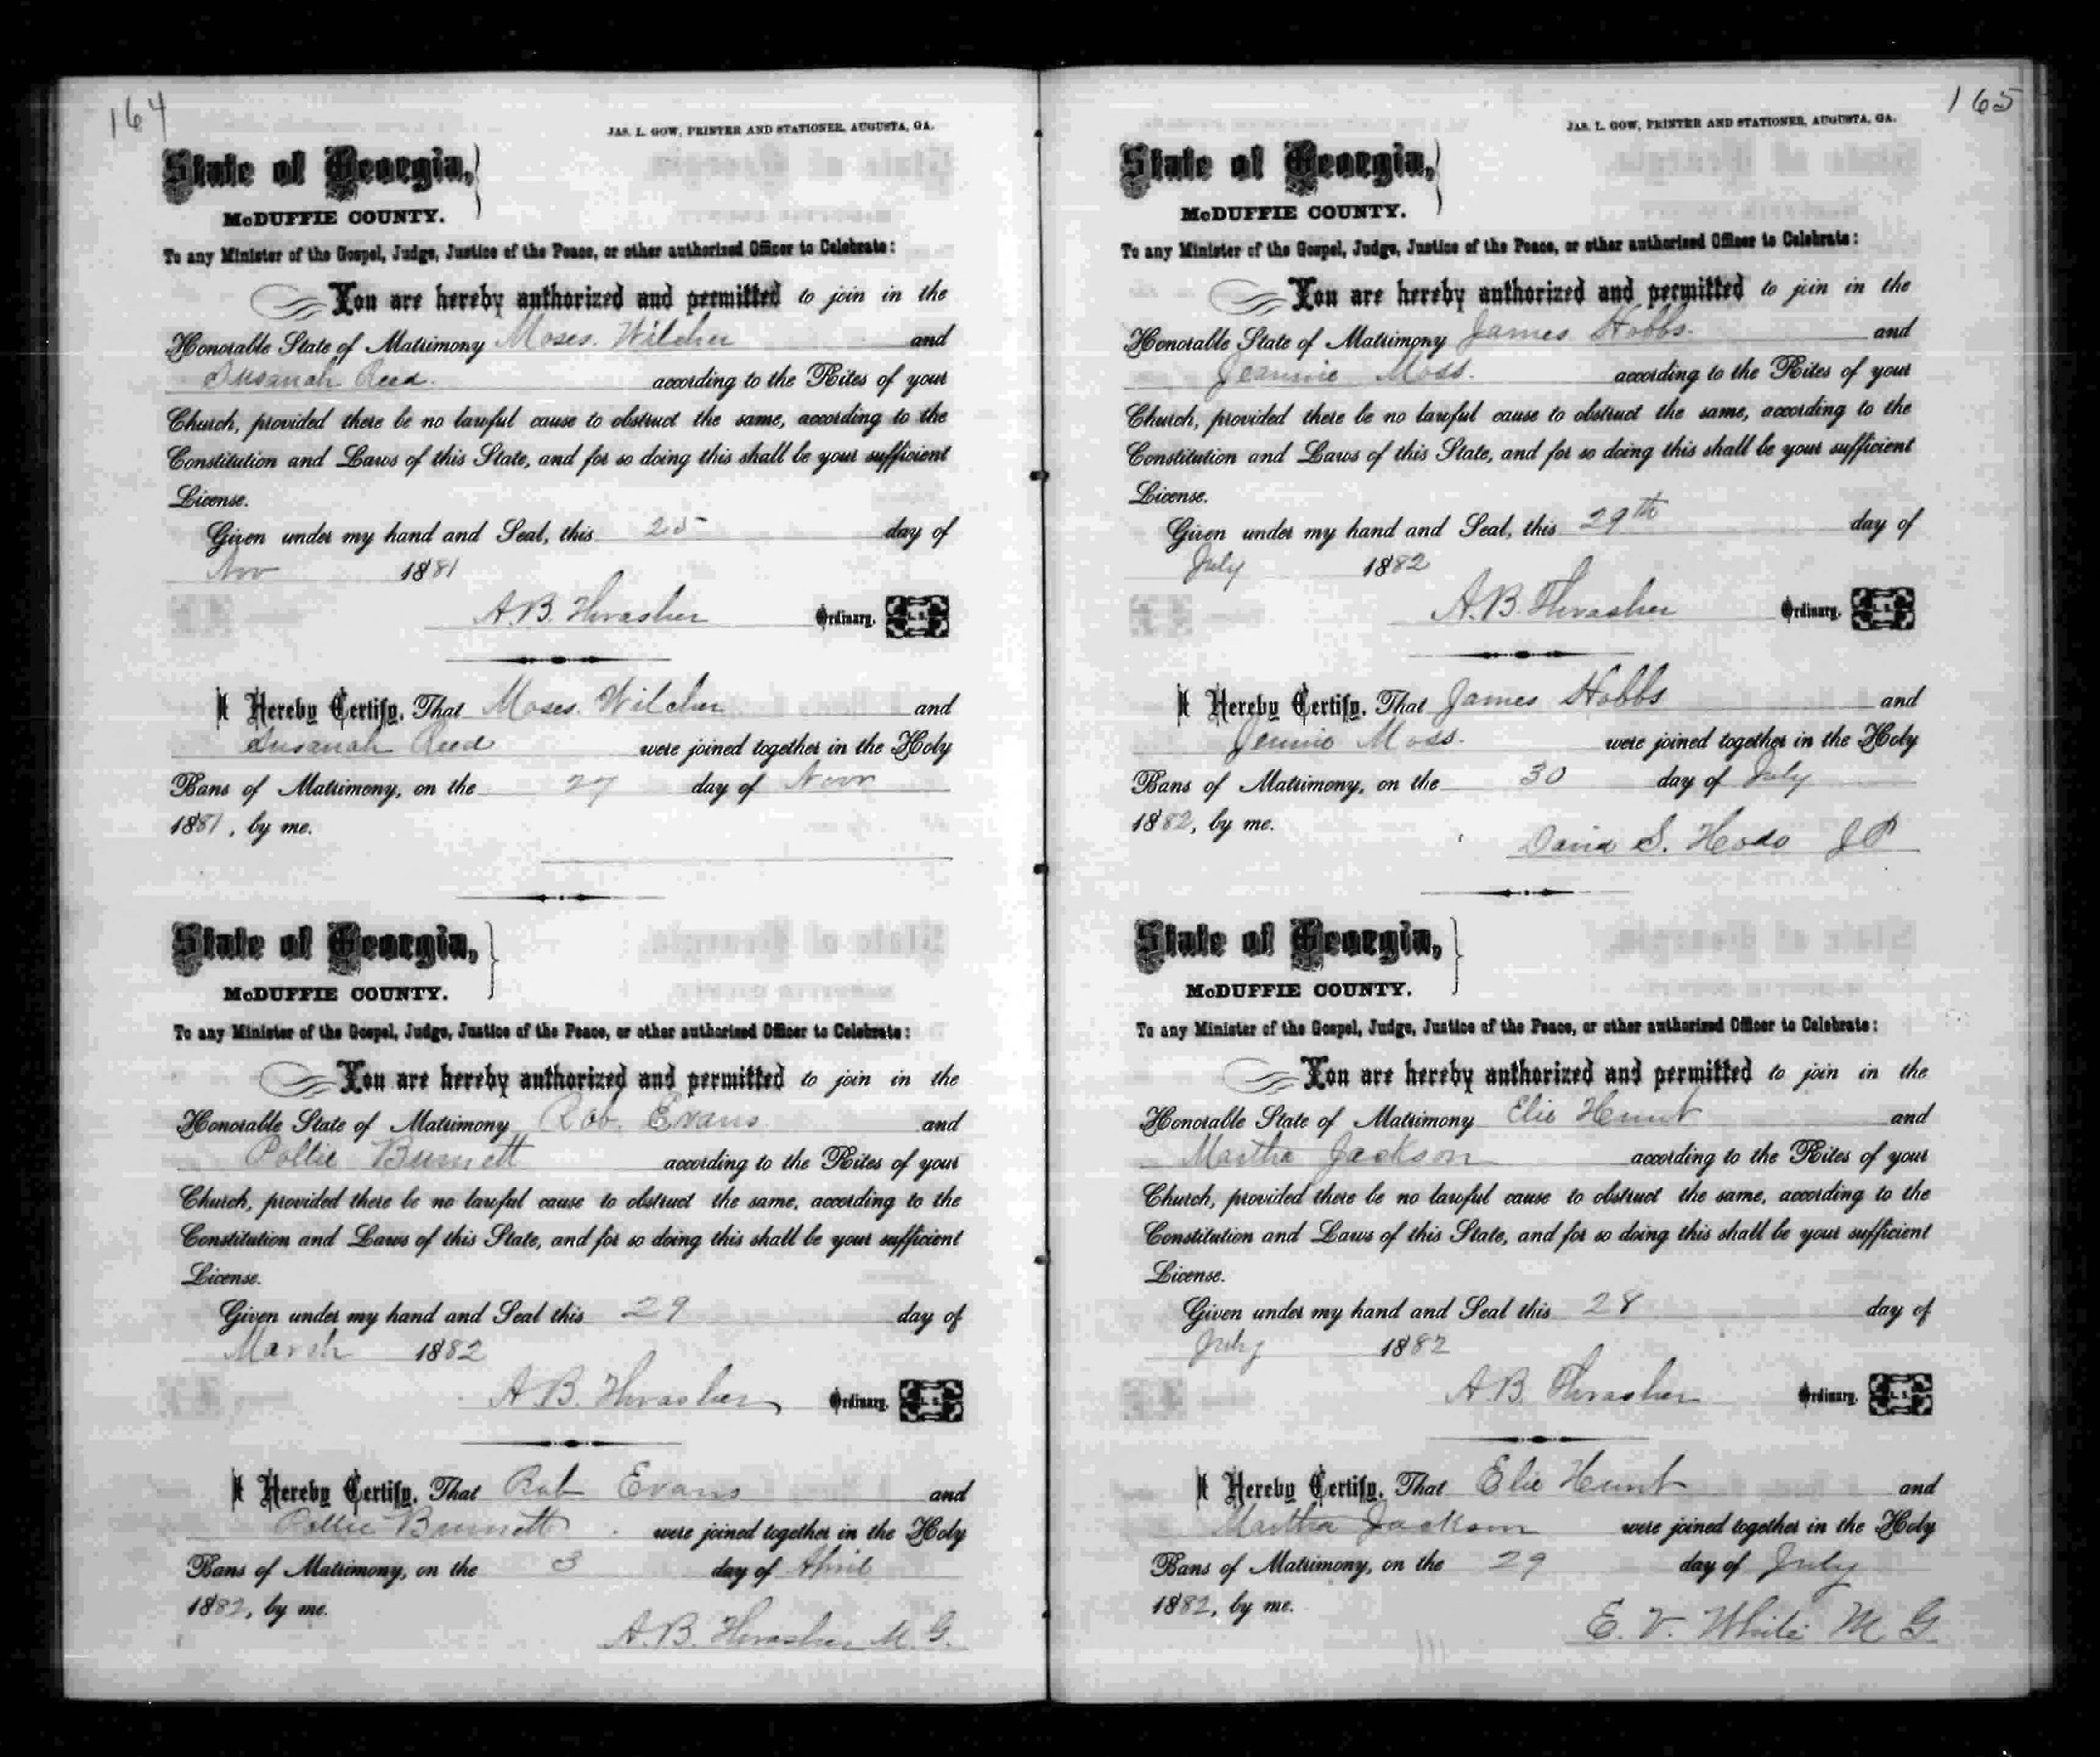 164
JAS. L. GOW, PRINTER AND STATIONER, AUGUSTA, GA.
State of Georgia,
McDUFFIE COUNTY.
To any Minister of the Gospel, Judge, Justice of the Peace, or other authorized Officer to Celebrate:
You are hereby authorized and permitted to join in the
Honorable State of Matrimony Moses. Wilcher and
Susanah Reed. according to the Rites of your
Church, provided there be no lawful cause to obstruct the same, according to the
Constitution and Laws of this State, and for so doing this shall be your sufficient
License.
Given under my hand and Seal, this 25 day of
Nov 1881
A.B. Thrasher Ordinary. L.S.
I Hereby Certify, That Moses. Wilcher and
Susanah Reed were joined together in the Holy
Bans of Matrimony, on the 27 day of Novr
1881, by me.
State of Georgia,
McDUFFIE COUNTY.
To any Minister of the Gospel, Judge, Justice of the Peace, or other authorized Officer to Celebrate:
You are hereby authorized and permitted to join in the
Honorable State of Matrimony Rob. Evans and
Pollie Burnett according to the Rites of your
Church, provided there be no lawful cause to obstruct the same, according to the
Constitution and Laws of this State, and for so doing this shall be your sufficient
License.
Given under my hand and Seal this 29 day of
March 1882
A.B. Thrasher Ordinary. L.S.
I Hereby Certify, That Rob Evans and
Pollie Burnett were joined together in the Holy
Bans of Matrimony, on the 3 day of April
1882, by me.
A.B. Thrasher M.G.
165
JAS. L. GOW, PRINTER AND STATIONER, AUGUSTA, GA.
State of Georgia,
McDUFFIE COUNTY.
To any Minister of the Gospel, Judge, Justice of the Peace, or other authorized Officer to Celebrate:
You are hereby authorized and permitted to join in the
Honorable State of Matrimony James Hobbs. and
Jeannie Moss. according to the Rites of your
Church, provided there be no lawful cause to obstruct the same, according to the
Constitution and Laws of this State, and for so doing this shall be your sufficient
License.
Given under my hand and Seal, this 29th day of
July 1882
A.B. Thrasher Ordinary. L.S.
I Hereby Certify, That James Hobbs and
Jennie Moss. were joined together in the Holy
Bans of Matrimony, on the 30 day of July
1882, by me.
David S. JP
State of Georgia,
McDUFFIE COUNTY.
To any Minister of the Gospel, Judge, Justice of the Peace, or other authorized Officer to Celebrate:
You are hereby authorized and permitted to join in the
Honorable State of Matrimony Elie Hunt and
Martha Jackson according to the Rites of your
Church, provided there be no lawful cause to obstruct the same, according to the
Constitution and Laws of this State, and for so doing this shall be your sufficient
License.
Given under my hand and Seal this 28 day of
July 1882
A.B. Thrasher Ordinary. L.S.
I Hereby Certify, That Elie Hunt and
Martha Jackson were joined together in the Holy
Bans of Matrimony, on the 29 day of July
1882, by me.
E. V. White M G